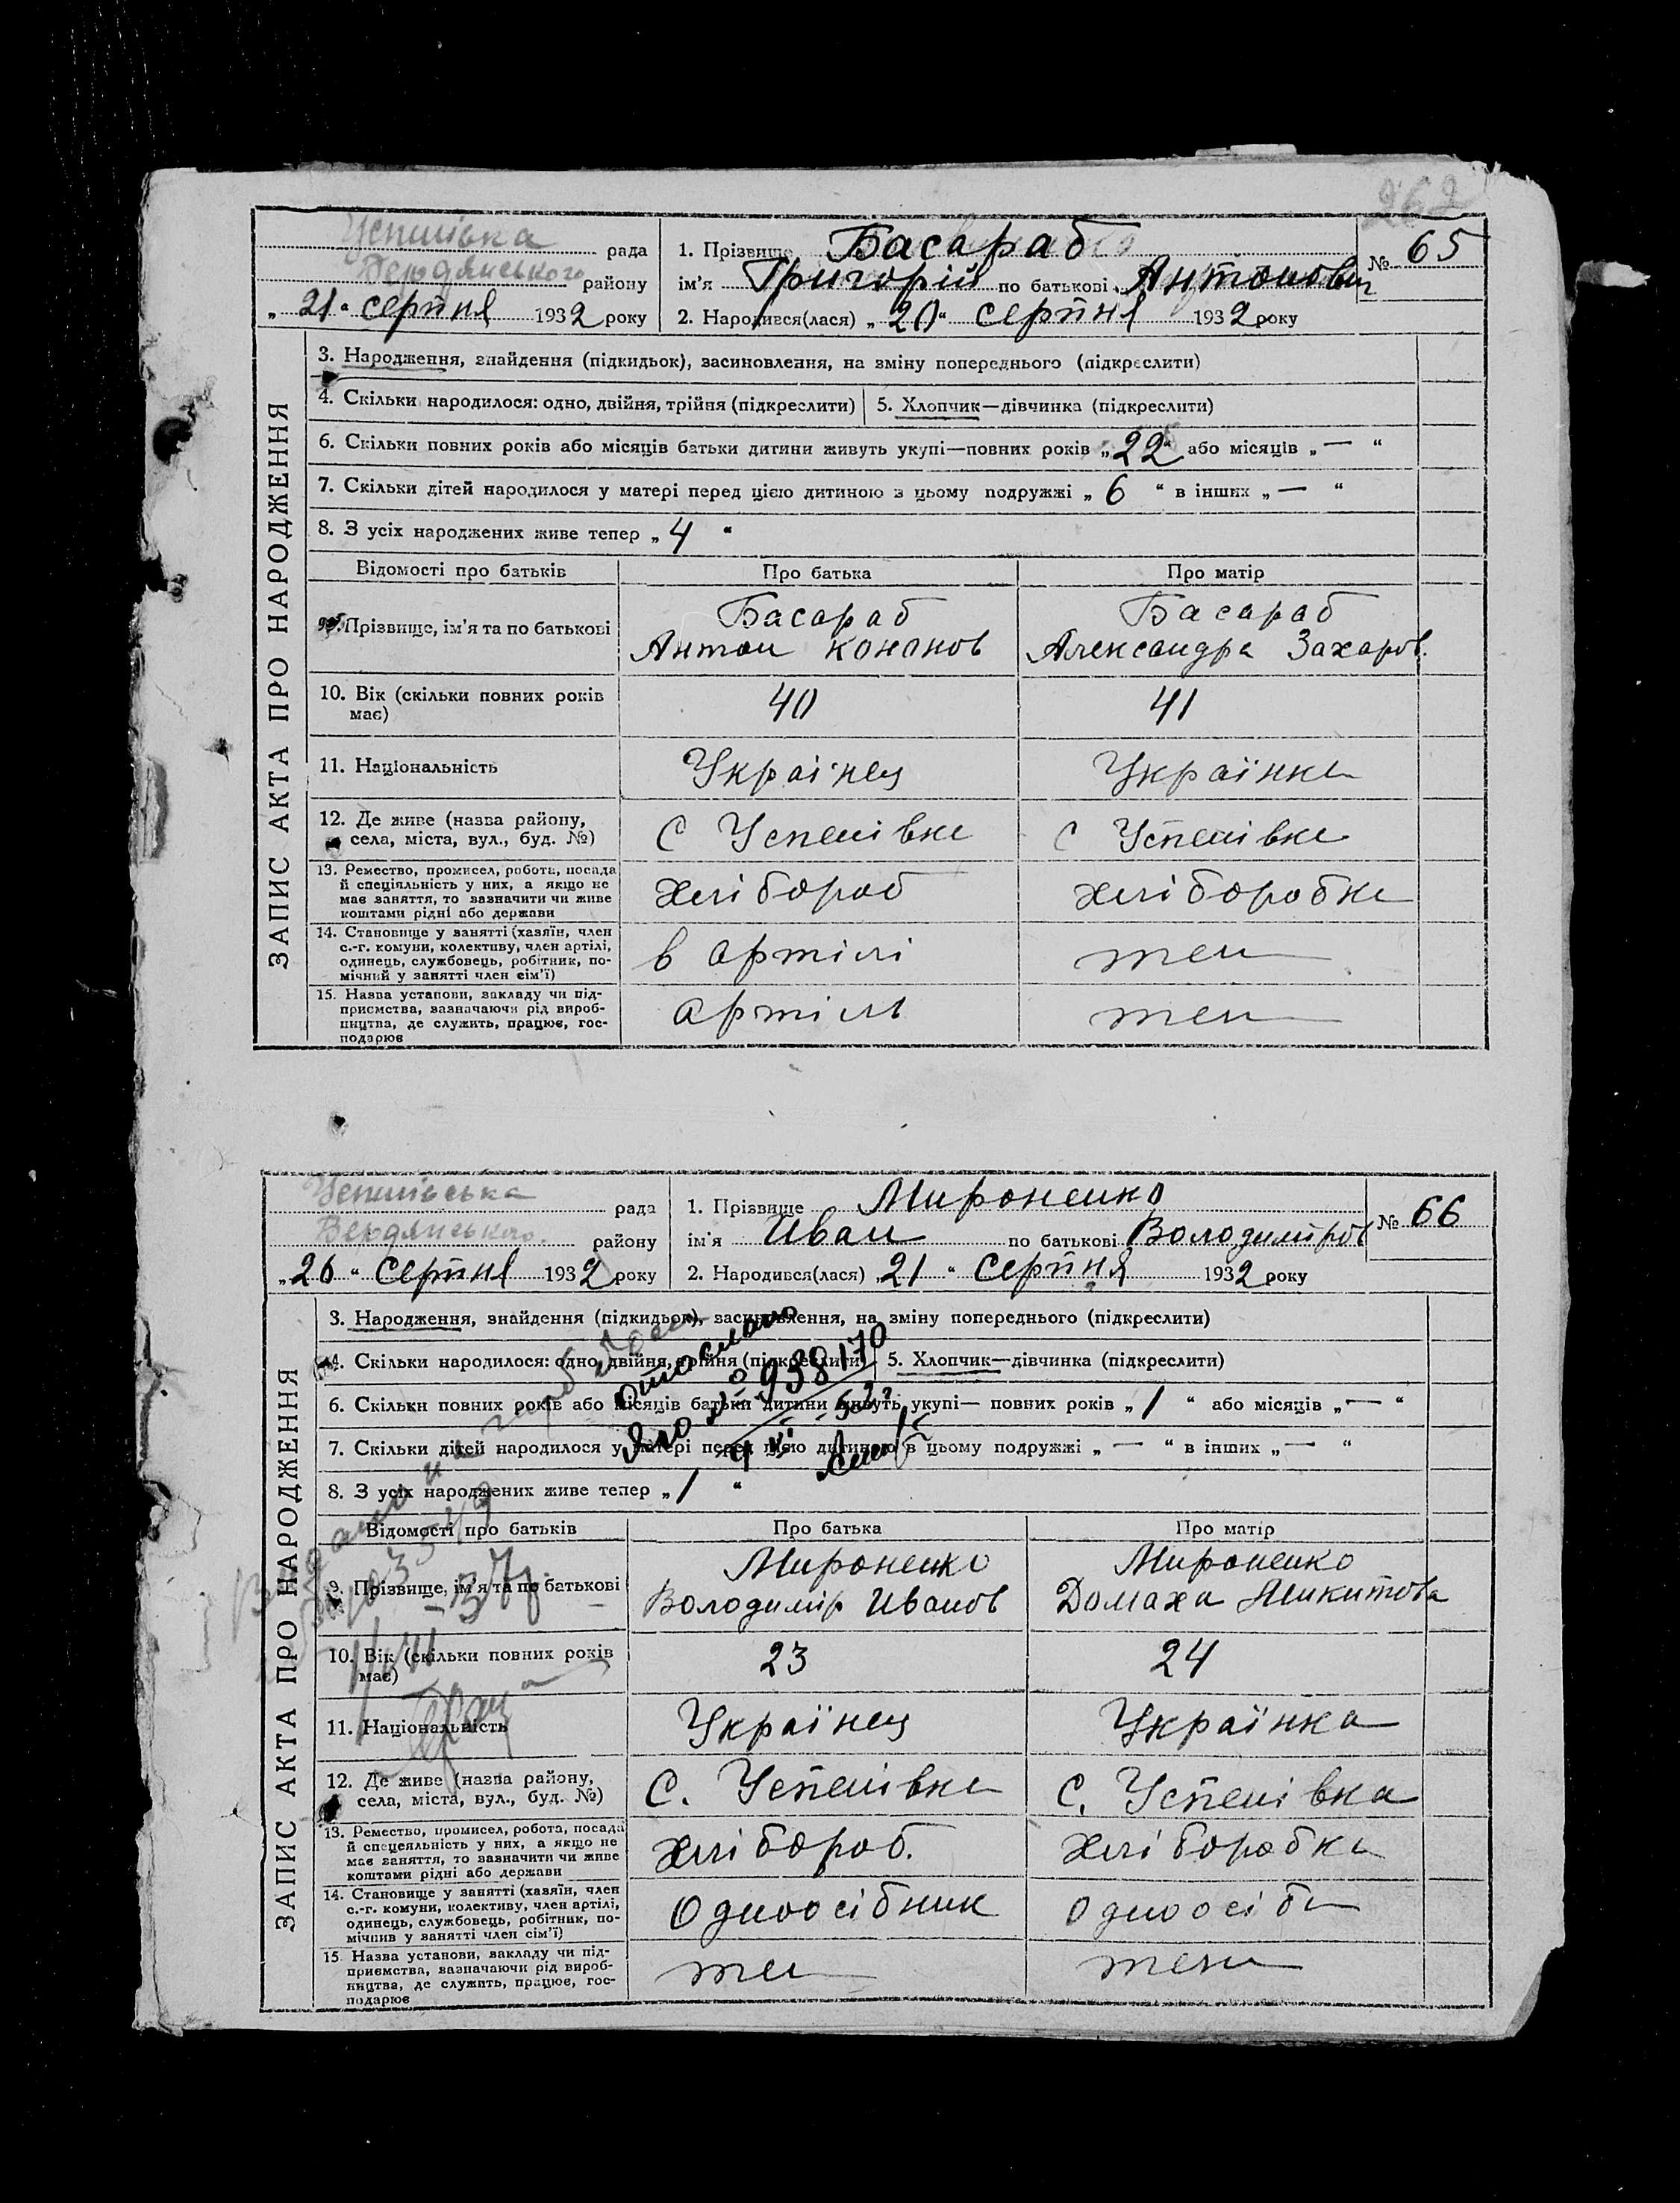 262
Успинівка рада
Бердянського району
„ 21 “ серпня 1932 року
1. Прізвище Басараб
ім'я Григорій по батькові Антонович
№ 65
2. Народився(лася) „ 20 “ серпня 1932 року
ЗАПИС АКТА ПРО НАРОДЖЕННЯ
3. Народження, знайдення (підкидьок), засиновлення, на зміну попереднього (підкреслити)
4. Скільки народилося: одно, двійня, трійня (підкреслити) 5. Хлопчик—дівчинка (підкреслити)
6. Скільки повних років або місяців батьки дитини живуть укупі—повних років „ 22 “ або місяців „ — “
7. Скільки дітей народилося у матері перед цією дитиною в цьому подружжі „ 6 “ в інших „ — “
8. З усіх народжених живе тепер „ 4 “
Відомості про батьків Про батька Про матір
9. Прізвище, ім'я та по батькові Басараб Антон Кононов Басараб Александра Захаров.
10. Вік (скільки повних років має) 40 41
11. Національність Українец Українка
12. Де живе (назва району, села, міста, вул., буд. №) С Успенівка С Успенівка
13. Ремество, промисел, робота, посада й спеціяльність у них, а якщо не має заняття, то зазначити чи живе коштами рідні або держави хлібороб хліборобка
14. Становище у занятті (хазяїн, член с.-г. комуни, колективу, член артілі, одинець, службовець, робітник, помічний у занятті член сім'ї) в артілі
15. Назва установи, закладу чи підприємства, зазначаючи рід виробництва, де служить, працює, господарює артіль
Успинівська рада
Бердянського району
„ 26 “ серпня 1932 року
1. Прізвище Мироненко
ім'я Иван по батькові Володимиров
№ 66
2. Народився(лася) „ 21 “ серпня 1932 року
ЗАПИС АКТА ПРО НАРОДЖЕННЯ
3. Народження, знайдення (підкидьок), засиновлення, на зміну попереднього (підкреслити)
4. Скільки народилося: одно, двійня, трійня (підкреслити) 5. Хлопчик—дівчинка (підкреслити)
6. Скільки повних років або місяців батьки дитини живуть укупі— повних років „ 1 “ або місяців „ — “
7. Скільки дітей народилося у матері перед цією дитиною в цьому подружжі „ — “ в інших „ — “
8. З усіх народжених живе тепер „ 1 “
Відомості про батьків Про батька Про матір
9. Прізвище, ім'я та по батькові Мироненко Володимір Иванов Мироненко Домаха Микитова
10. Вік (скільки повних років має) 23 24
11. Національність Українец Українка
12. Де живе (назва району, села, міста, вул., буд. №) С. Успенівка С. Успенівка
13. Ремество, промисел, робота, посада й спецеяльність у них, а якщо не має заняття, то зазначити чи живе коштами рідні або держави хлібороб. хліборобка
14. Становище у занятті (хазяїн, член с.-г. комуни, колективу, член артілі, одинець, службовець, робітник, помічнив у занятті член сім'ї) Одноосібник
15. Назва установи, закладу чи підприємства, зазначаючи рід виробництва, де служить, працює, господарює